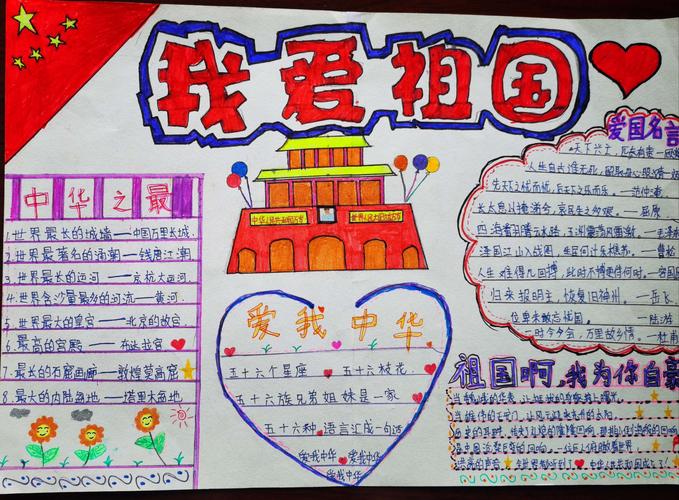 我爱祖国
中华之最
1.世界最长的城墙——中国万里长城
2.世界最著名的涌潮——钱唐江潮
3.世界最长的运河——京杭大运河
4.世界含沙量最多的河流——黄河
5.世界最大的皇宫——北京的故宫
6.最高的宫殿——布达拉宫
7.最长的石窟画廊——敦煌莫高窟
8.最大的内陆盆地——塔里木盆地
中华人民共和国万岁
世界人民大团结万岁
爱我中华
五十六个星座 五十六枝花
五十六族兄弟姐妹是一家
五十六种语言汇成一句话
爱我中华 爱我中华
爱我中华
爱国名言
天下兴亡，匹夫有责
人生自古谁无死，留取丹心照汗青
先天下之忧而忧，后天下之乐而乐。——范仲淹
长太息以掩涕兮，哀民生之多艰。——屈原
四海翻腾云水怒，五洲震荡风雷激。
泽国江山入战图，生民何计乐樵苏。——曹松
人生难得几回搏，此时不搏更待何时。——容国团
归来报明主，恢复旧神州。——岳飞
位卑未敢忘忧国。——陆游
一时今夕会，万里故乡情。——杜甫
祖国啊，我为你自豪